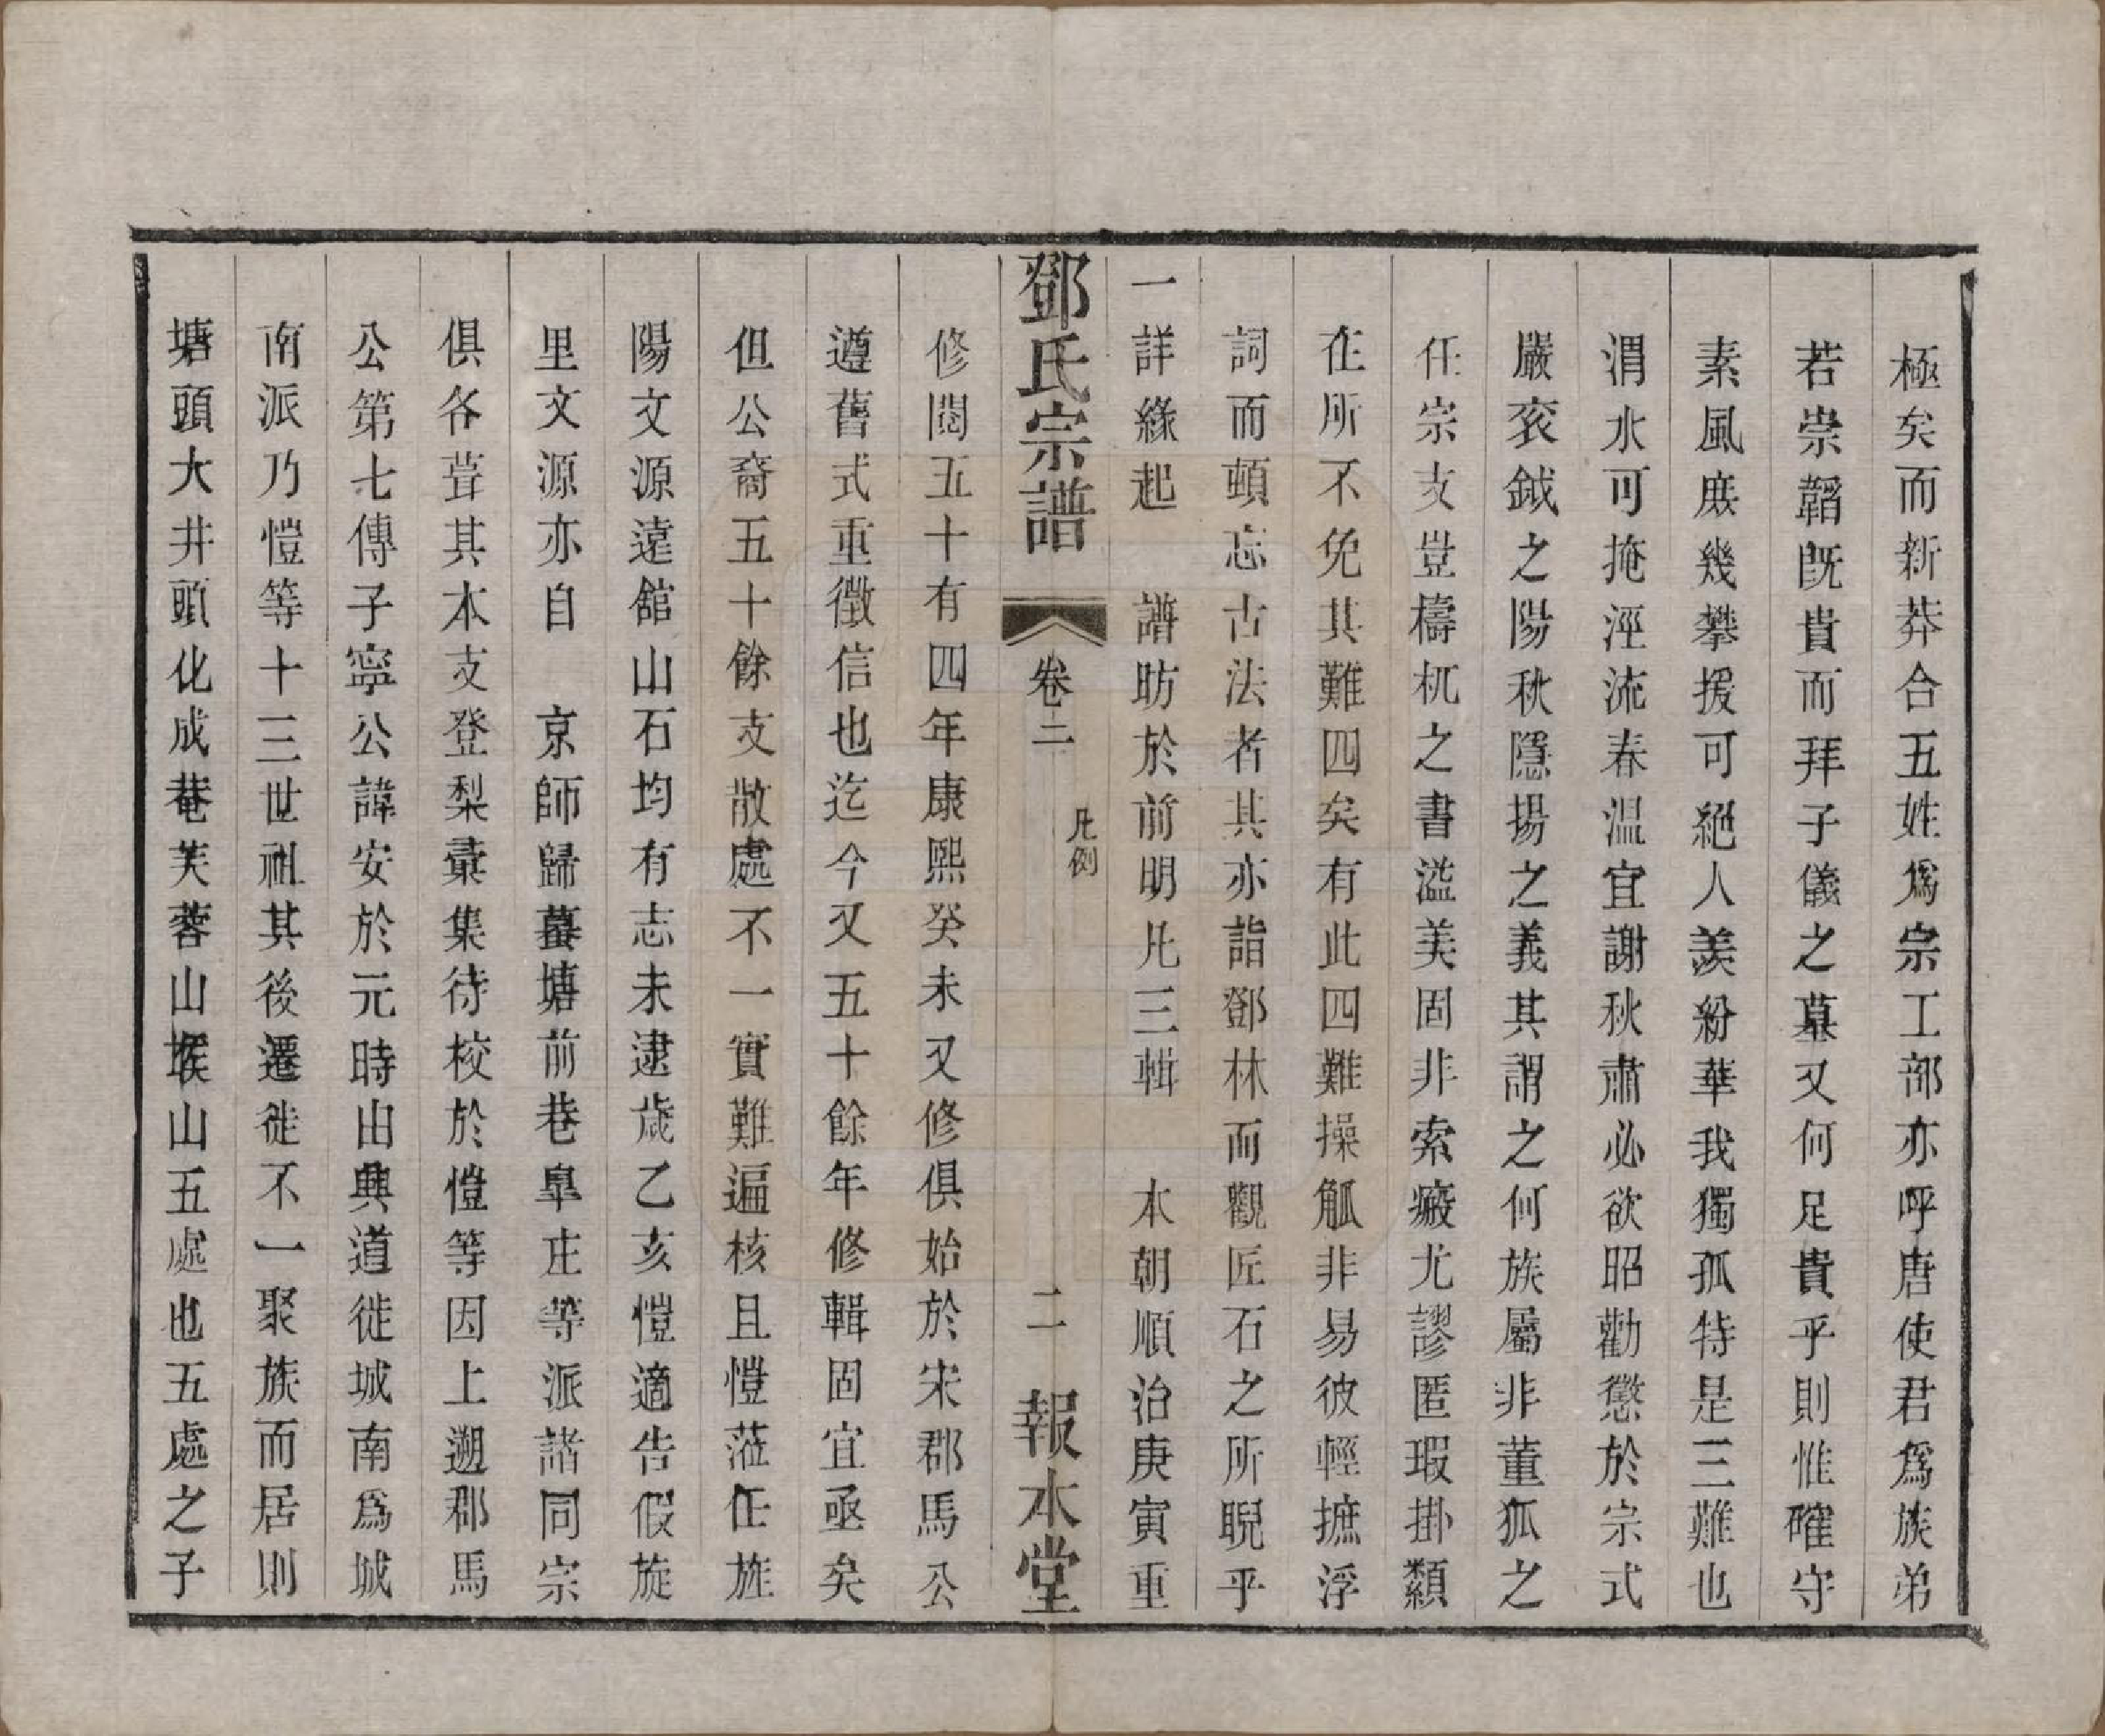 極矣而新莽合五姓爲宗工部亦呼唐使君爲族弟
若崇韜旣貴而拜子儀之墓又何足貴乎則惟確守
素風庶幾攀援可絕人羨紛華我獨孤特是三難也
渭水可掩涇流春温宜謝秋肅必欲昭勸懲於宗式
嚴衮鉞之陽秋隱揚之義其謂之何族屬非董狐之
任宗支豈檮杌之書溢美固非索瘢尤謬匿瑕掛纇
在所不免其難四矣有此四難操觚非易彼輕摭浮
詞而頓忘古法者其亦詣鄧林而觀匠石之所睨乎
一詳緣起　譜昉於前明凡三輯　本朝順治庚寅重
鄧氏宗譜　卷二　凡例　二　報本堂
修閱五十有四年康熙癸未又修俱始於宋郡馬公
遵舊式重徵信也迄今又五十餘年修輯固宜亟矣
但公裔五十餘支散處不一實難遍核且愷蒞任旌
陽文源遠舘山石均有志未逮歲乙亥愷適告假旋
里文源亦自　京師歸蠶塘前巷阜庄等派諸同宗
俱各葺其本支登梨彙集待校於愷等因上遡郡馬
公第七傳子寧公諱安於元時由興道徙城南爲城
南派乃愷等十三世祖其後遷徙不一聚族而居則
塘頭大井頭化成菴芙蓉山堠山五處也五處之子